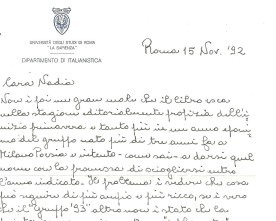 UNIVERSITÀ DEGLI STUDI DI ROMA
"LA SAPIENZA"
DIPARTIMENTO DI ITALIANISTICA
Roma 15 Nov. '92
Cara Nadia
Non è poi un gran male che il libro esca
nella stagione editorialmente propizia dell'i-
nizio primavera e tanto più in un anno
del gruppo nato più di tre anni fa a
MilanoPoesia e intento - come sai - a darsi quel
nome con la promessa di sciogliersi entro
l'anno indicato. Il problema è vedere che cosa
può seguire di più ampio e più ricco, se è vero
che il Gruppo '93 altro non è stato che la